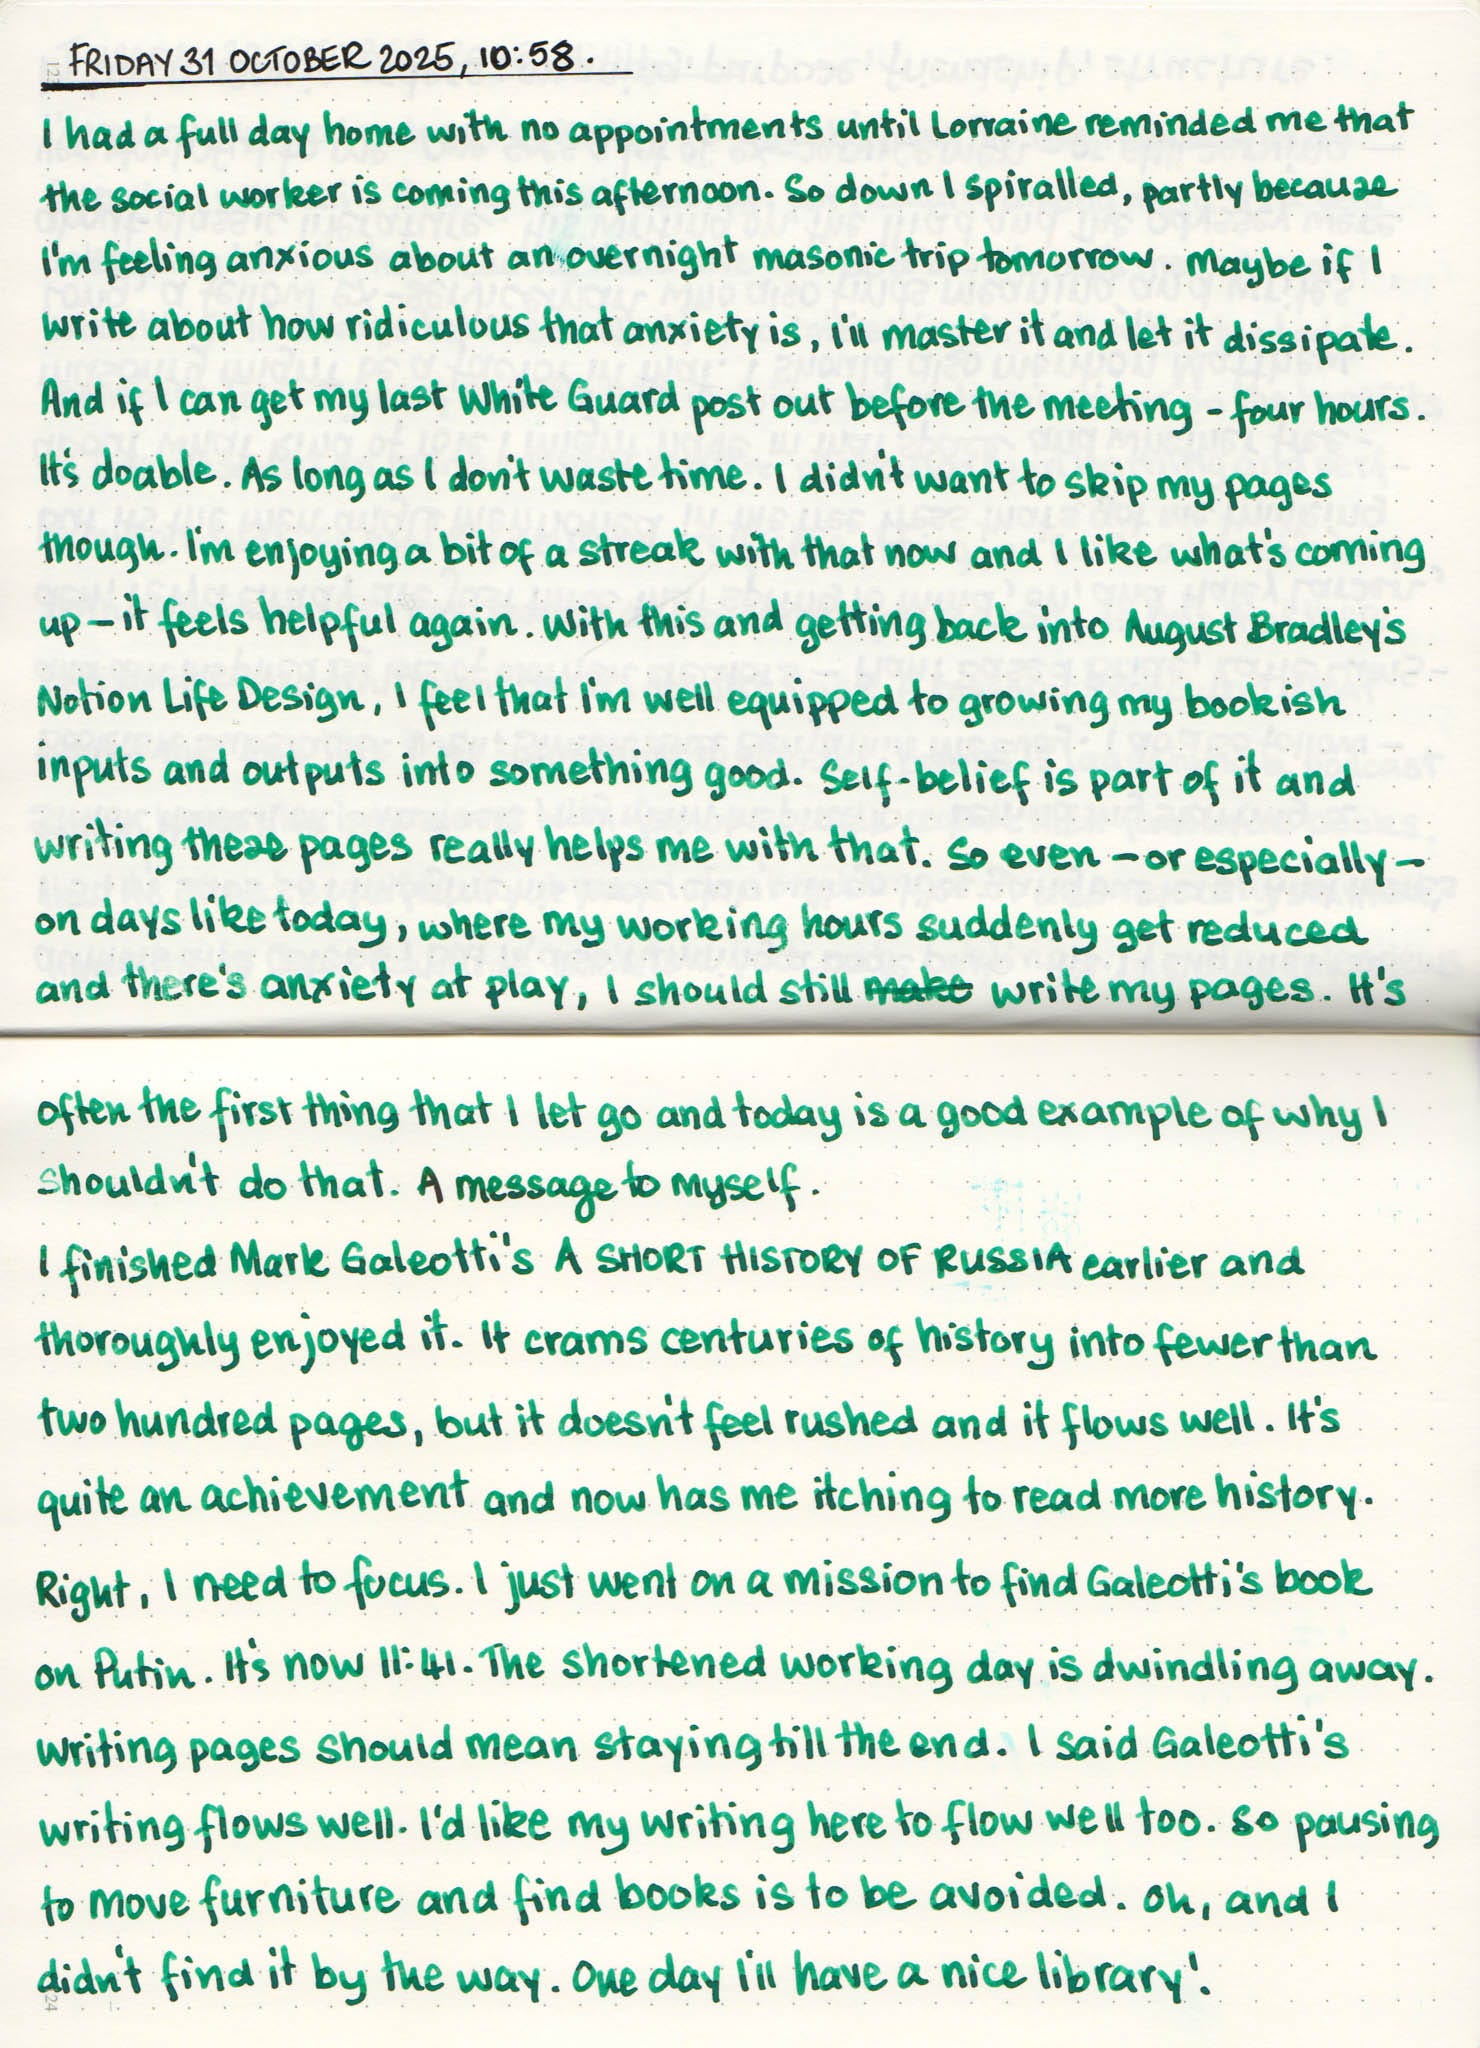 FRIDAY 31 OCTOBER 2025, 10:58.
I had a full day home with no appointments until Lorraine reminded me that
the social worker is coming this afternoon. So down I spiralled, partly because
I'm feeling anxious about an overnight masonic trip tomorrow. Maybe if I
write about how ridiculous that anxiety is, I'll master it and let it dissipate.
And if I can get my last White Guard post out before the meeting – four hours.
It's doable. As long as I don't waste time. I didn't want to skip my pages
though. I'm enjoying a bit of a streak with that now and I like what's coming
up – it feels helpful again. With this and getting back into August Bradley's
Notion Life Design, I feel that I'm well equipped to growing my bookish
inputs and outputs into something good. Self-belief is part of it and
writing these pages really helps me with that. So even – or especially –
on days like today, where my working hours suddenly get reduced
and there's anxiety at play, I should still make write my pages. It's
often the first thing that I let go and today is a good example of why I
shouldn't do that. A message to myself.
I finished Mark Galeotti's A SHORT HISTORY OF RUSSIA earlier and
thoroughly enjoyed it. It crams centuries of history into fewer than
two hundred pages, but it doesn't feel rushed and it flows well. It's
quite an achievement and now has me itching to read more history.
Right, I need to focus. I just went on a mission to find Galeotti's book
on Putin. It's now 11:41. The shortened working day is dwindling away.
Writing pages should mean staying till the end. I said Galeotti's
writing flows well. I'd like my writing here to flow well too. So pausing
to move furniture and find books is to be avoided. Oh, and I
didn't find it by the way. One day I'll have a nice library!